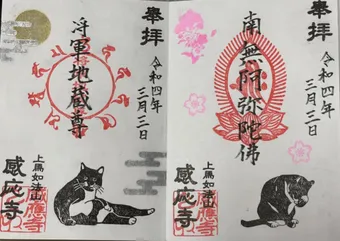 奉拝
南無阿弥陀佛
令和四年
三月三日
上馬如法山
感応寺
奉拝
将軍地蔵尊
令和四年
三月三日
上馬如法山
感応寺